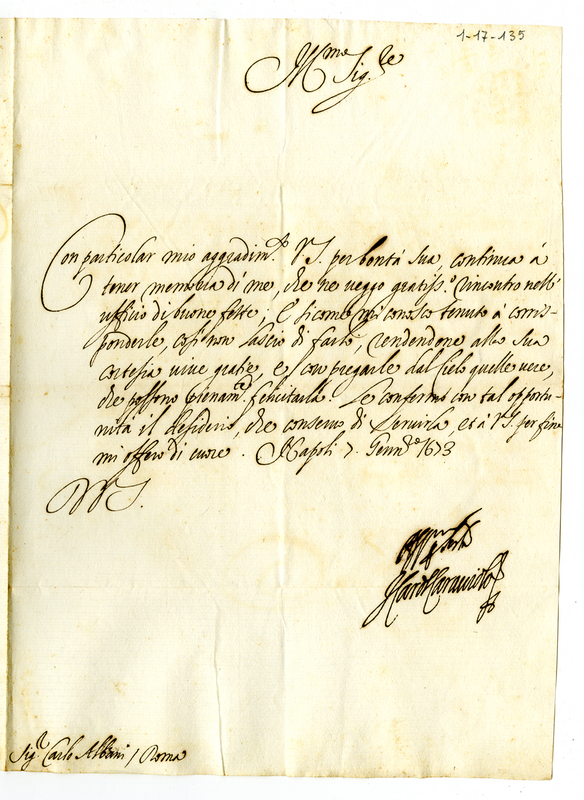 1-17-135
M.me Sig.re
Con particolar mio aggradim.to V.S. per bontà sua continua à
tener memoria di me, che ne veggo gratiss.o rincontro nell'
ufficio di buone feste; E sicome mi conosco tenuto à corris-
ponderle, così non lascio di farlo, rendendone alla sua
cortesia vive gratie, e con pregarle dal Cielo quelle vere,
che possono pienam.te felicitarla. Le confermo con tal opportu-
nità il desiderio, che conservo di servirla, et à V.S. per fine
mi offero di cuore. Napoli 7. Genn.o 1673
D V.S.
Il Card. Caracciolo
Sig.r Carlo Albani / Roma